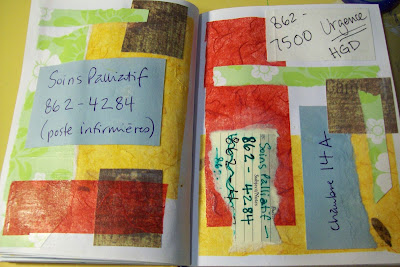 Soins Palliatif
862-4284
(poste infirmières)
862-
7500
Urgence
HGD
Soins Palliatif -
862-4284
chambre 14A